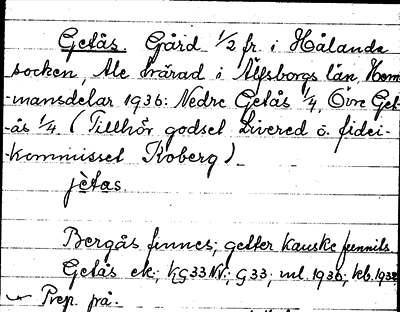 Getås. Gård 1/2 fr. i Hålanda
socken, Ale härad i Älfsborgs län, Hem-
-mansdelar 1936: Nedre Getås 1/4, Övre Get-
-ås 1/4. (Tillhör godset Livered o. fidei-
-kommisset Koberg).
jètas
Bergås finnes; getter kanske funnits
Getås ek.; kG33NV.; G33; ml. 1936; kb. 1932
Prep. på.